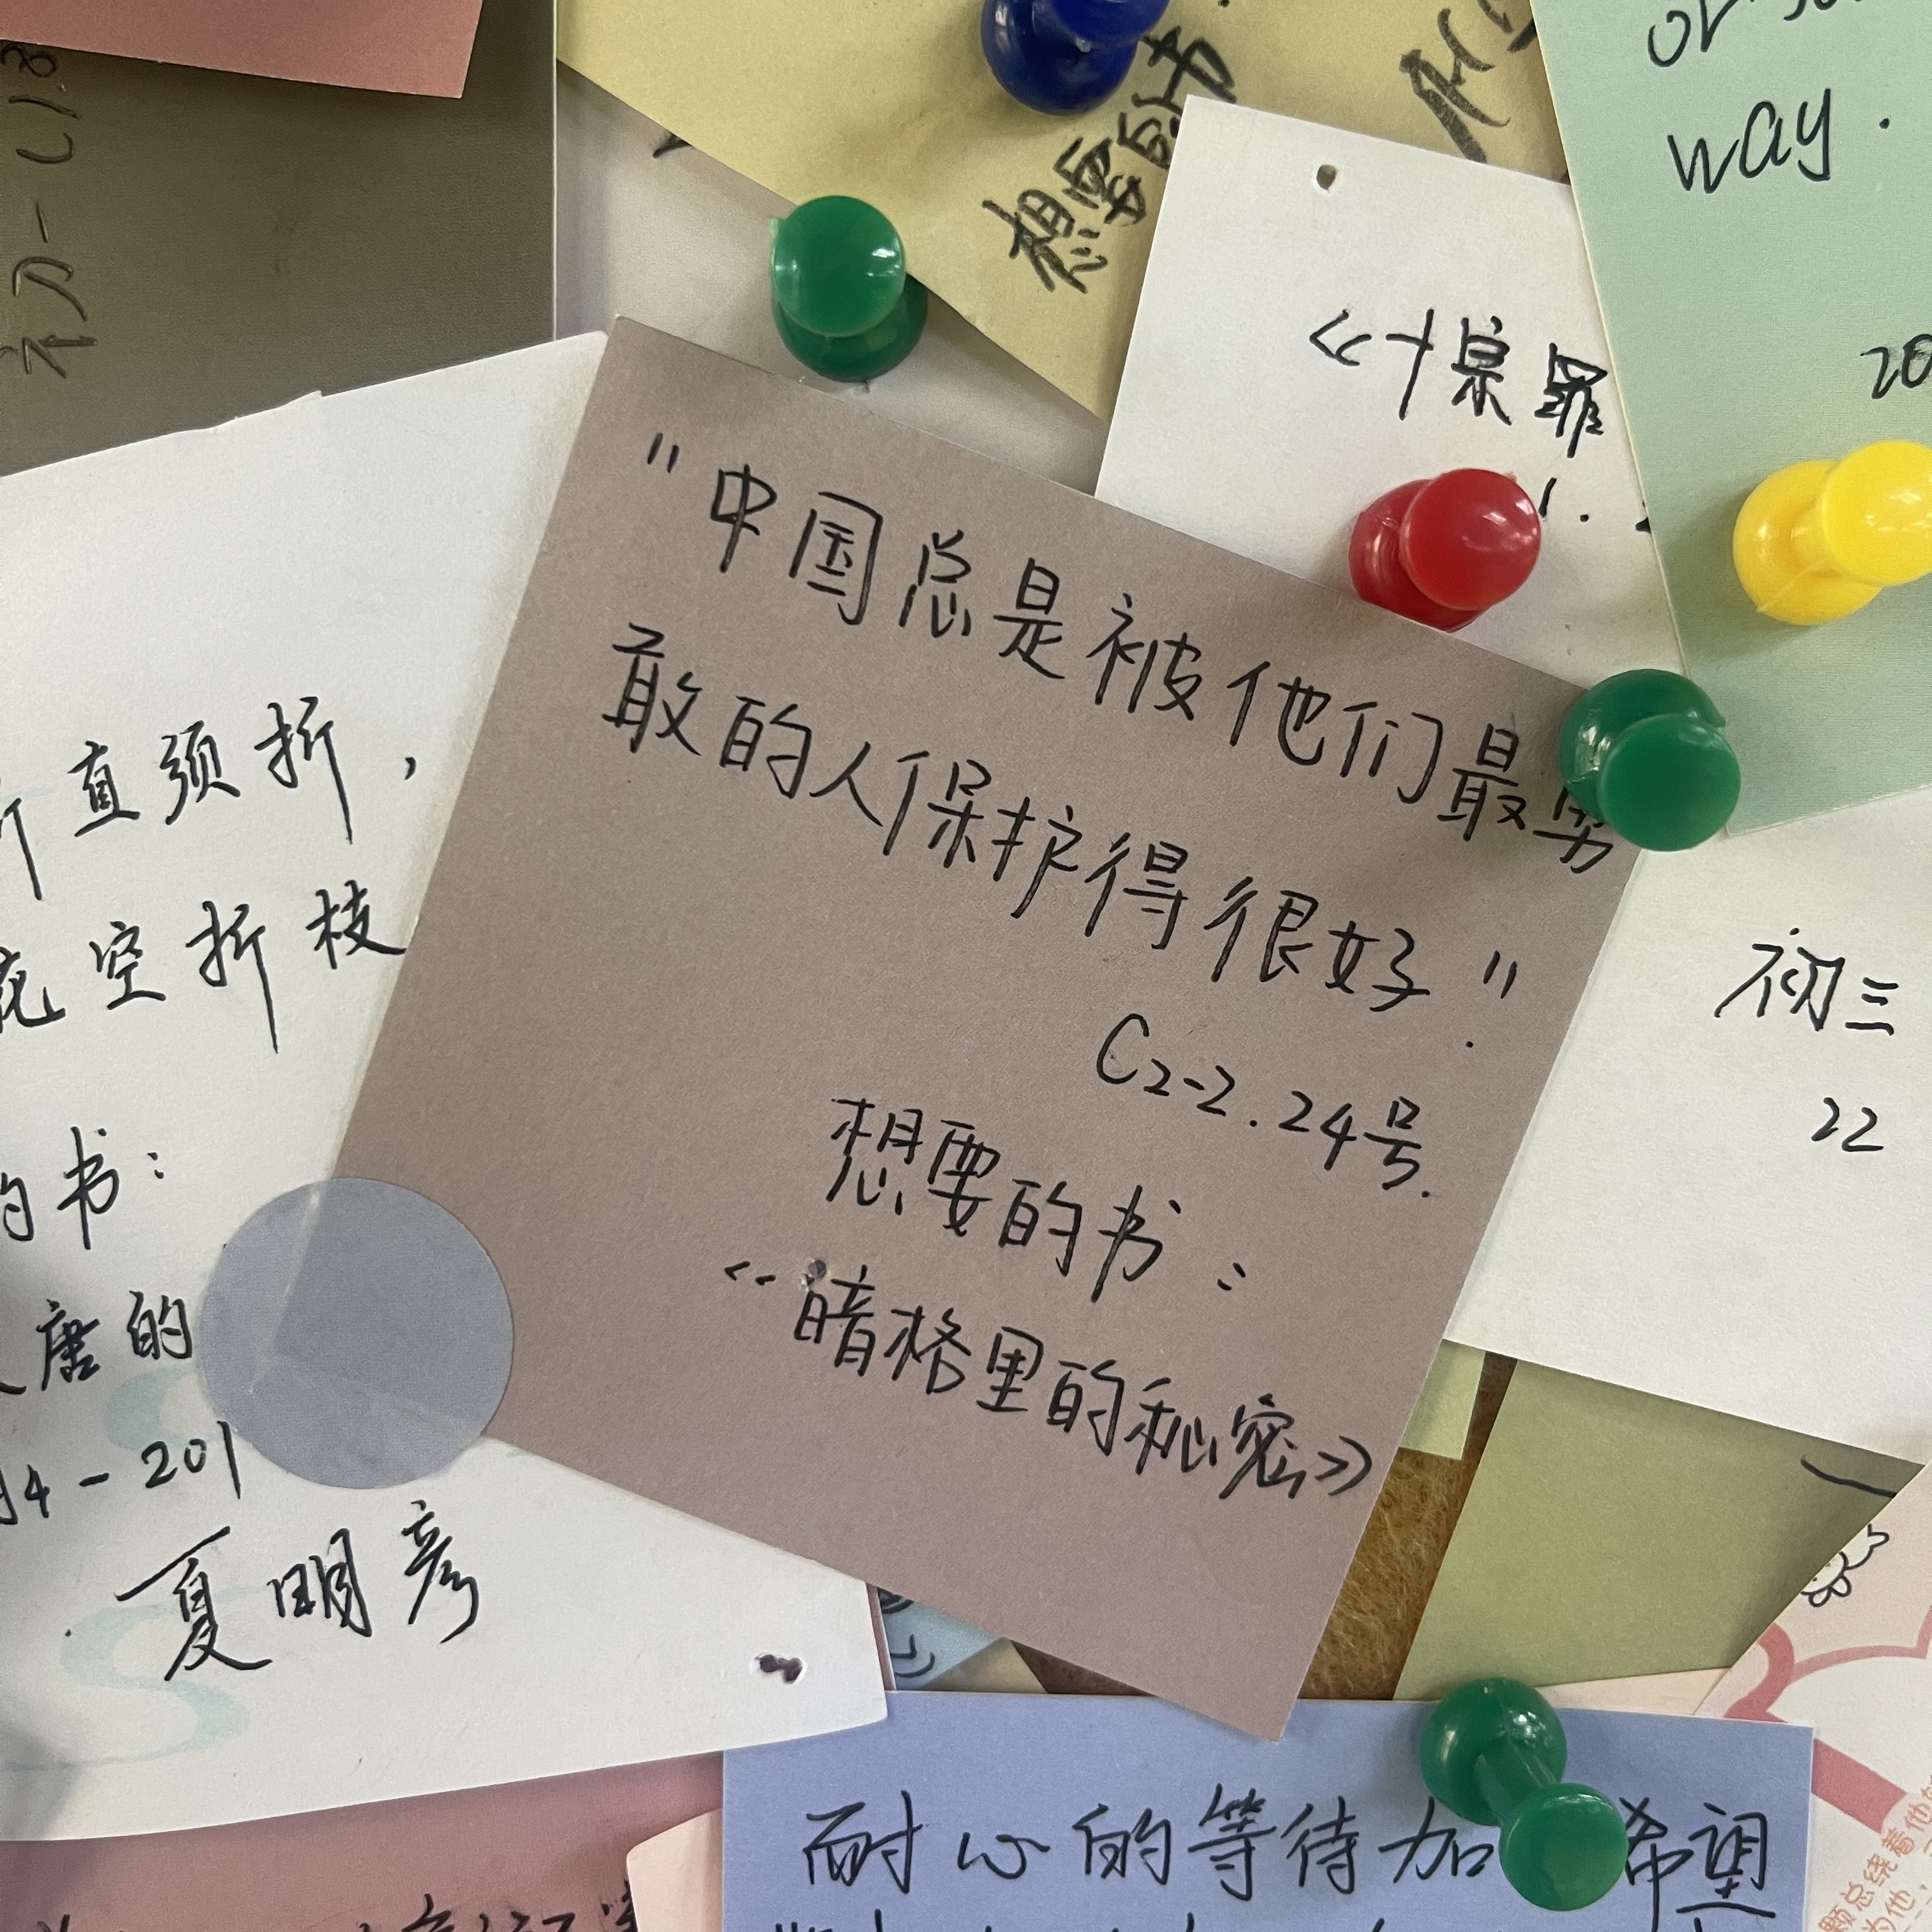 "中国总是被他们最勇
敢的人保护得很好."
C2-2.24号.
想要的书:
《暗格里的秘密》
想要的书
《十宗罪
way.
20
直须折,
花空折枝
的书:
唐的
4-201
夏明彦
初三
22
耐心的等待加
希望